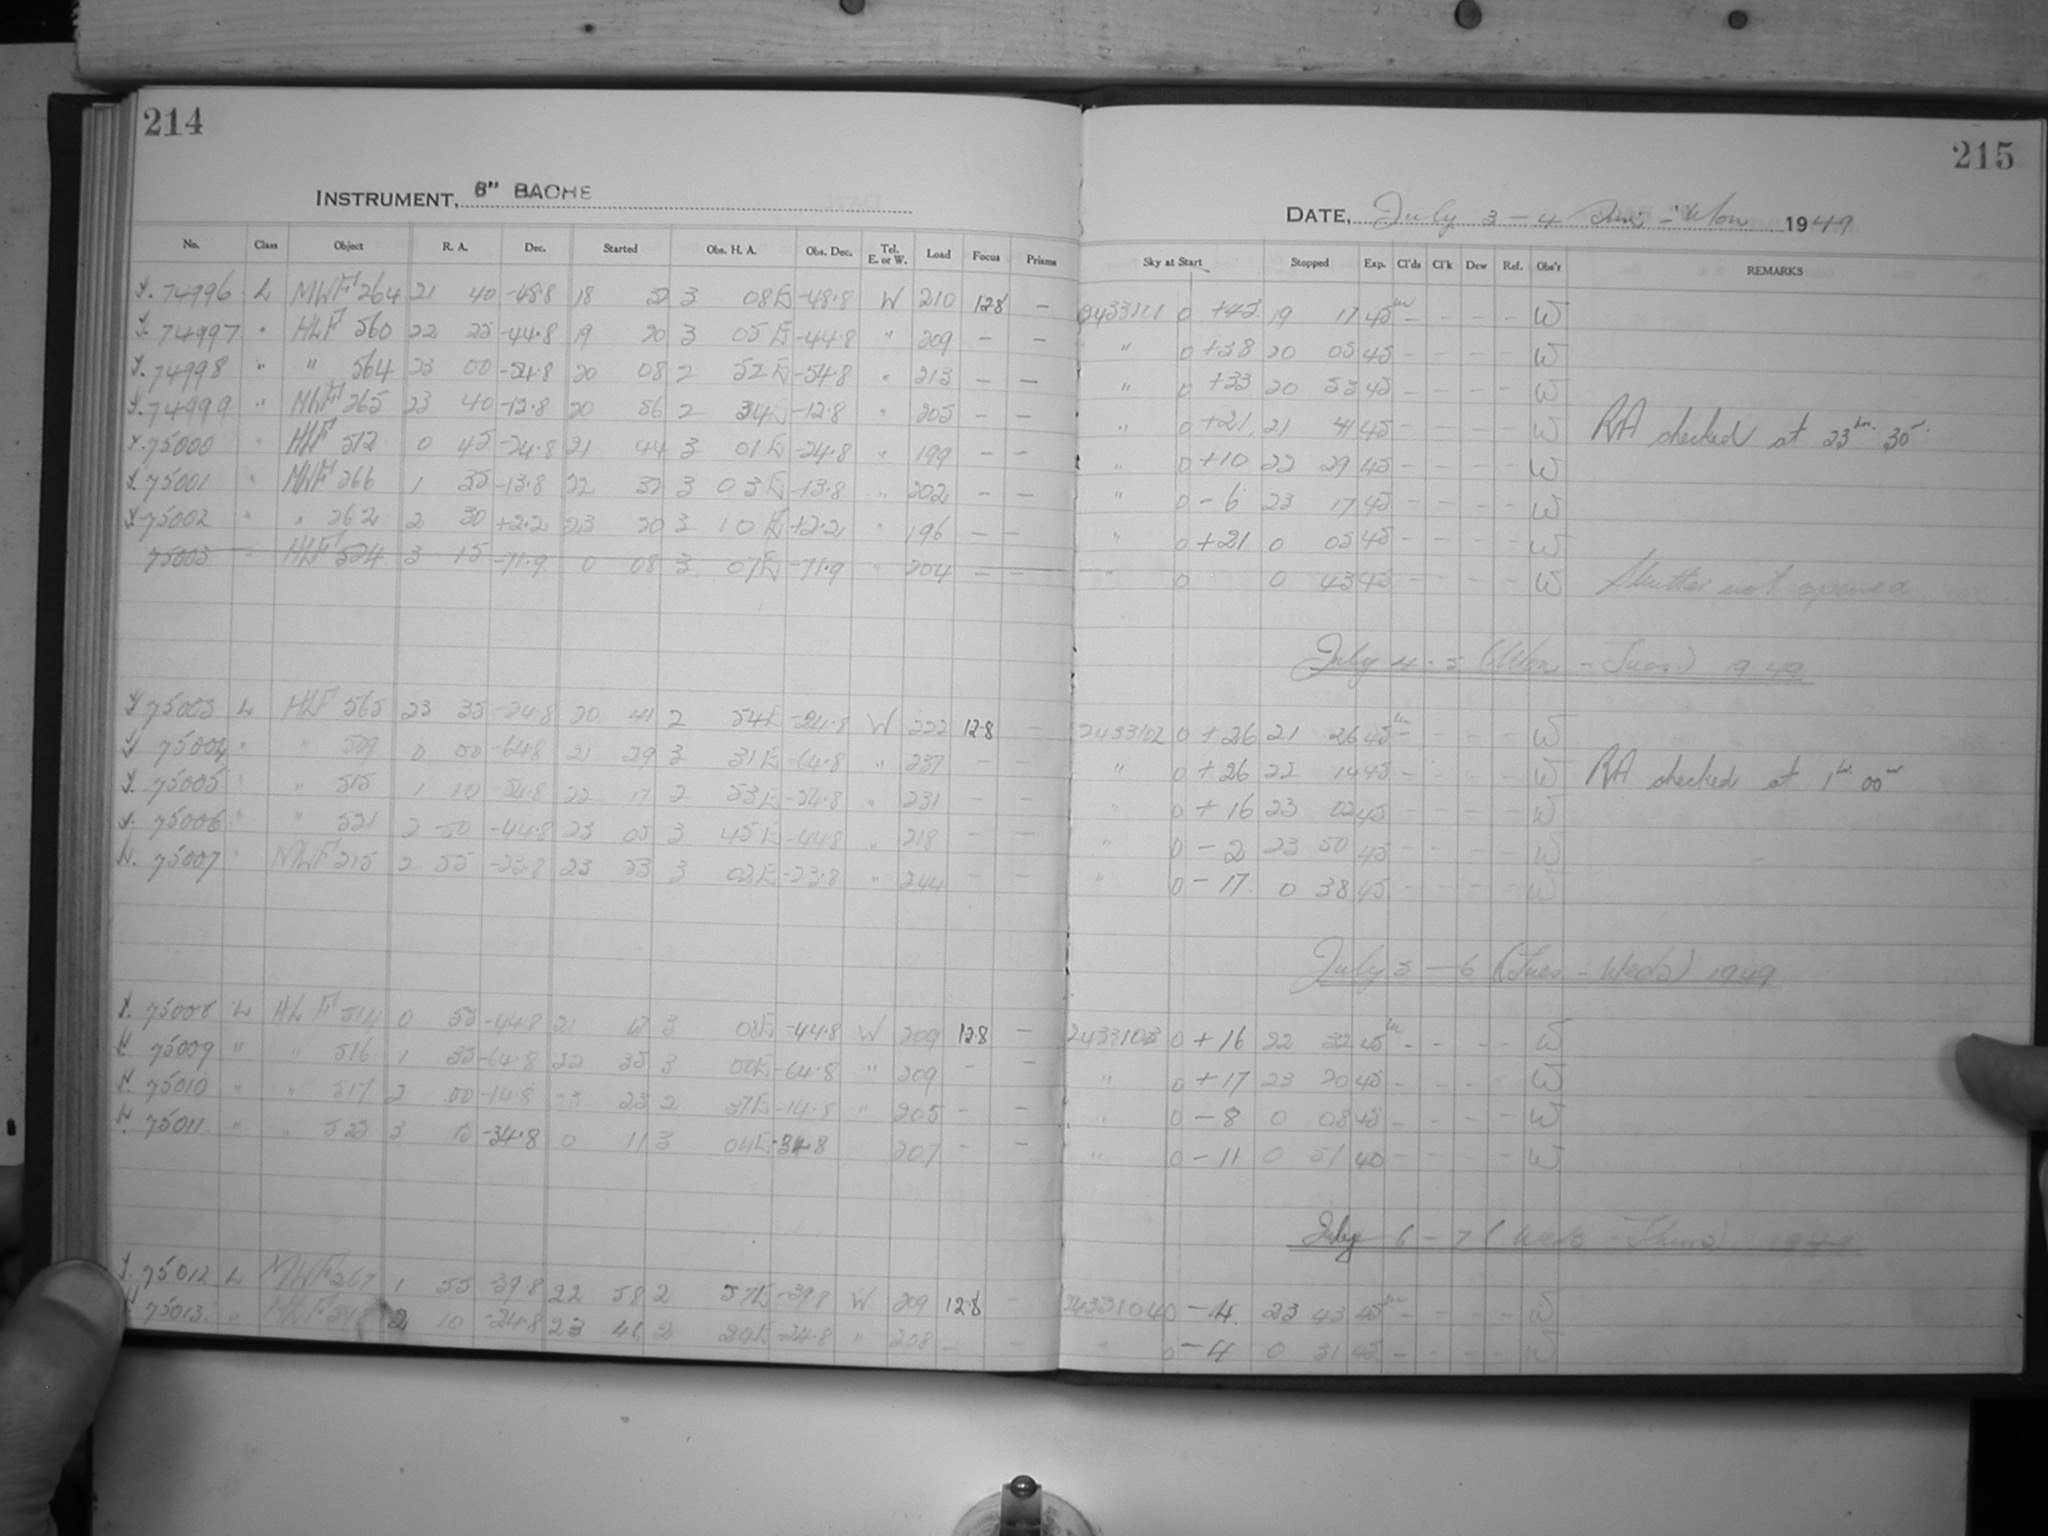 214
215
INSTRUMENT, 8" BACHE
DATE, July 3 - 4 Sun - Mon 1949
No. Class Object R. A. Dec. Started Obs. H. A. Obs. Dec. Tel. E. or W. Load Focus Prisms Sky at Start Stopped Exp. Cl'ds Cl'k Dew Ref. Obs'r REMARKS
74996 L MWF 264 21 40 -48.8 18 32 3 08E -48.8 W 210 12.8 - 0 +43 19 17 45 - - - - W
74997 " HLF 560 22 25 -44.8 19 20 3 05E -44.8 " 209 - - " 0 +38 20 05 45 - - - - W
74998 " " 564 23 00 -54.8 20 08 2 52E -54.8 " 213 - - " 0 +33 20 53 45 - - - - W
74999 " MWF 265 23 40 -12.8 20 56 2 34E -12.8 " 205 - - " 0 +21 21 41 45 - - - - W RA checked at 23 hr. 30 m.
75000 " HLF 512 0 45 -24.8 21 44 3 01E -24.8 " 199 - - " 0 +10 22 29 45 - - - - W
75001 " MWF 266 1 35 -13.8 22 32 3 03E -13.8 " 202 - - " 0 -6 23 17 45 - - - - W
75002 " " 262 2 30 +2.2 23 20 3 10E +2.2 " 196 - - " 0 +21 0 05 45 - - - - W
75003 " HLF 524 3 15 -71.9 0 08 3 07E -71.9 " 204 - - " 0 0 43 45 - - - - W Shutter not opened
July 4 - 5 (Mon - Tues) 1949
75003 L HLF 565 23 35 -24.8 20 41 2 54E -24.8 W 222 12.8 - 2433102 0 +26 21 26 45 - - - - W
75004 " " 509 0 00 -64.8 21 29 3 31E -64.8 " 237 - - " 0 +26 22 14 45 - - - - W RA checked at 1 hr. 00 m
75005 " " 515 1 10 22 17 2 53E " 231 - - " 0 +16 23 02 45 - - - - W
75006 " " 521 2 50 -44.8 23 05 3 45E -44.8 " 218 - - " 0 -2 23 50 45 - - - - W
75007 " MWF 215 2 55 -23.8 23 53 3 02E -23.8 " 244 - - " 0 -17 0 38 45 - - - - W
July 5 - 6 (Tues - Weds) 1949
75008 L HLF 514 0 55 -44.8 21 47 3 08E -44.8 W 209 12.8 - 2433103 0 +16 22 32 45 - - - - W
75009 " " 516 1 35 -64.8 22 35 3 00E -64.8 " 209 - - " 0 +17 23 20 45 - - - - W
75010 " " 517 2 00 -14.8 23 23 2 37E -14.8 " 205 - - " 0 -8 0 08 45 - - - - W
75011 " " 523 3 15 -34.8 0 11 3 04E -34.8 207 - - " 0 -11 0 51 40 - - - - W
July 6 - 7 (Weds - Thurs) 1949
75012 L MWF 267 1 55 -39.8 22 58 2 57E -39.8 W 209 12.8 - 2433104 0 -4 23 43 45 - - - - W
75013 " HLF 2 10 -24.8 23 46 2 24E -24.8 " 208 - - " 0 -4 0 31 45 - - - - W